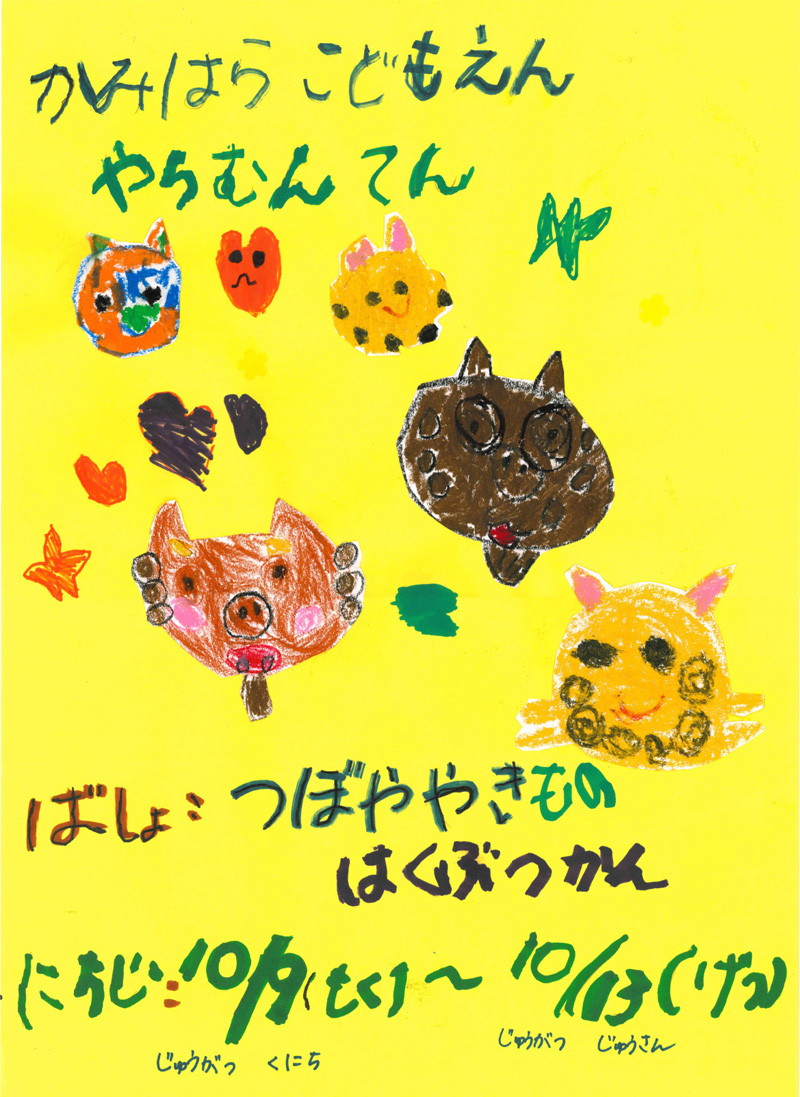 かみはら こどもえん
やちむん てん
ばしょ: つぼややきもの
はくぶつかん
にちじ: 10/9(もく)~ 10/13(げつ)
じゅうがつ じゅうさん
じゅうがつ くにち